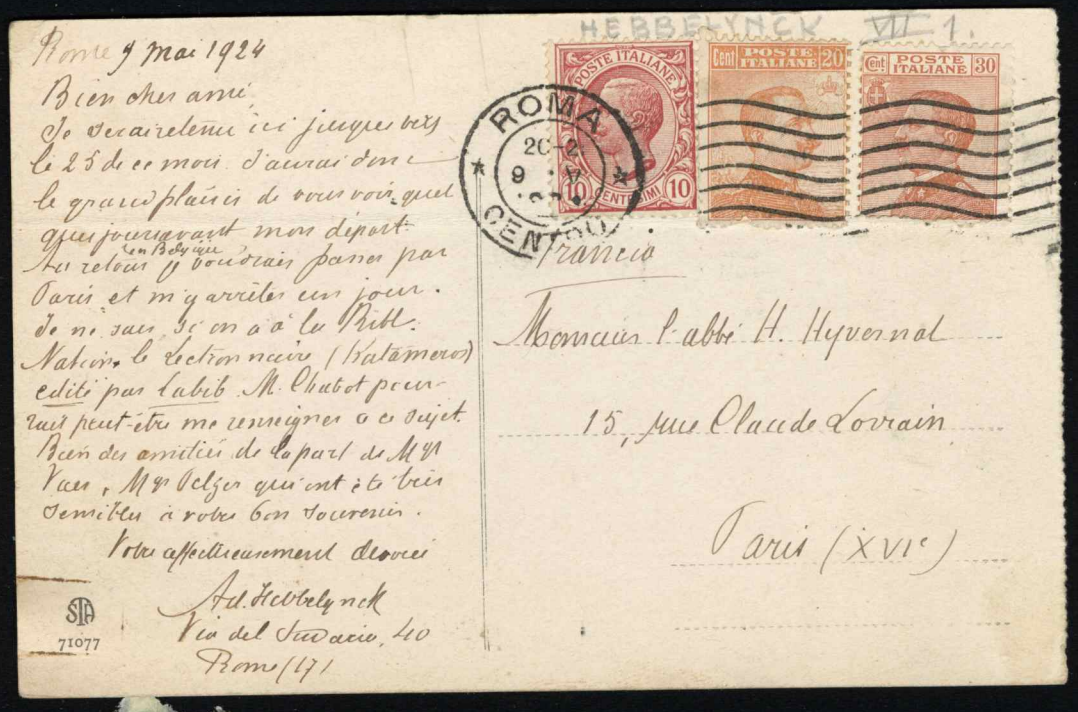 HEBBELYNCK VII 1.
Rome 9 mai 1924
Bien cher ami,
Je serai retenu ici jusque vers
le 25 de ce mois. J'aurai donc
le grand plaisir de vous voir quel
ques jours avant mon départ.
Au retour en Belgique je voudrais passer par
Paris et m'y arrêter un jour.
Je ne sais si on a à la Bibl.
Nation. le Lectionnaire (Katameros)
edité par Labib. M. Chabot pour-
rait peut-être me renseigner à ce sujet.
Bien des amitiés de la part de Mgr
Vaes, Mgr Pelzer qui ont été très
sensibles à votre bon souvenir.
Votre affectueusement dévoué
Ad. Hebbelynck
Via del Sudario, 40
Rome (17)
STA
71077
POSTE ITALIANE
10 CENTESIMI 10
Cent POSTE ITALIANE 20
Cent POSTE ITALIANE 30
ROMA
20-2
9 V
CENTRO
Francia
Monsieur l'abbé H. Hyvernat
15, rue Claude Lorrain
Paris (XVIe)